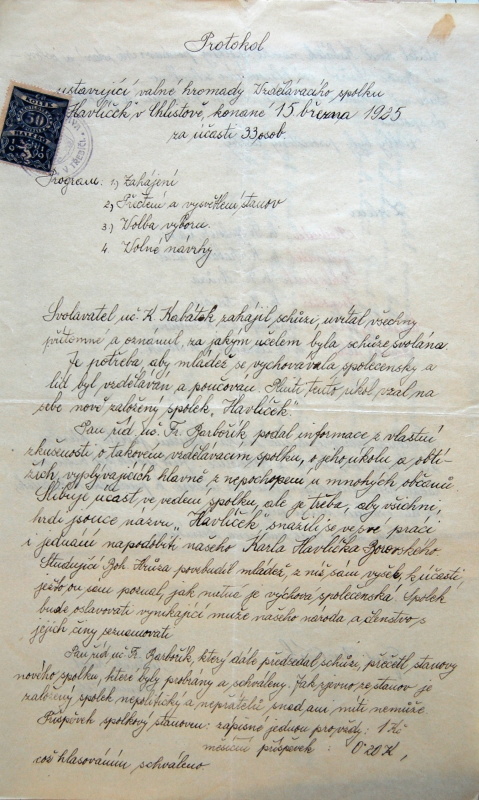 Protokol
ustavující valné hromady Vzdělávacího spolku
"Havlíček" v Chlístově, konané 15 března 1925
za účasti 33 osob.
50
Program: 1) Zahájení
2) Přečtení a vysvětlení stanov
3) Volba výboru.
4. Volné návrhy
Svolavatel uč. K. Kabátek zahájil schůzi, uvítal všechny
přítomné a oznámil, za jakým účelem byla schůze svolána
Je potřeba, aby mládež se vychovávala společensky a
lid byl vzděláván a poučován. Plniti tento úkol vzal na
sebe nově založený spolek "Havlíček".
Pan říd. uč. Fr. Barbořík podal informace z vlastní
zkušenosti o takovém vzdělávacím spolku, o jeho úkolu a obtí-
žích, vyplývajících hlavně z nepochopení u mnohých občanů
Slibuje účast ve vedení spolku, ale je třeba, aby všichni,
hrdi jsouce názvu "Havlíček" snažili se ve své práci
i jednání napodobiti našeho Karla Havlíčka Borovského.
Studující Boh. povzbudil mládež, z níž sám vyšel, k účasti,
ježto sám poznal, jak nutna je výchova společenská. Spolek
bude oslavovati vynikající muže našeho národa a členstvo s
jejich činy seznamovati
Pan říd. uč. Fr. Barbořík, který dále předsedal schůzi, přečetl stanovy
nového spolku, které byly probrány a schváleny. Jak zjevno ze stanov je
založený spolek nepolitický a nepřátel snad ani míti nemůže
Příspěvek spolkový stanoven: zápisné jednou pro vždy: 1 Kč
měsíční příspěvek: 0·20 K,
což hlasováním schváleno